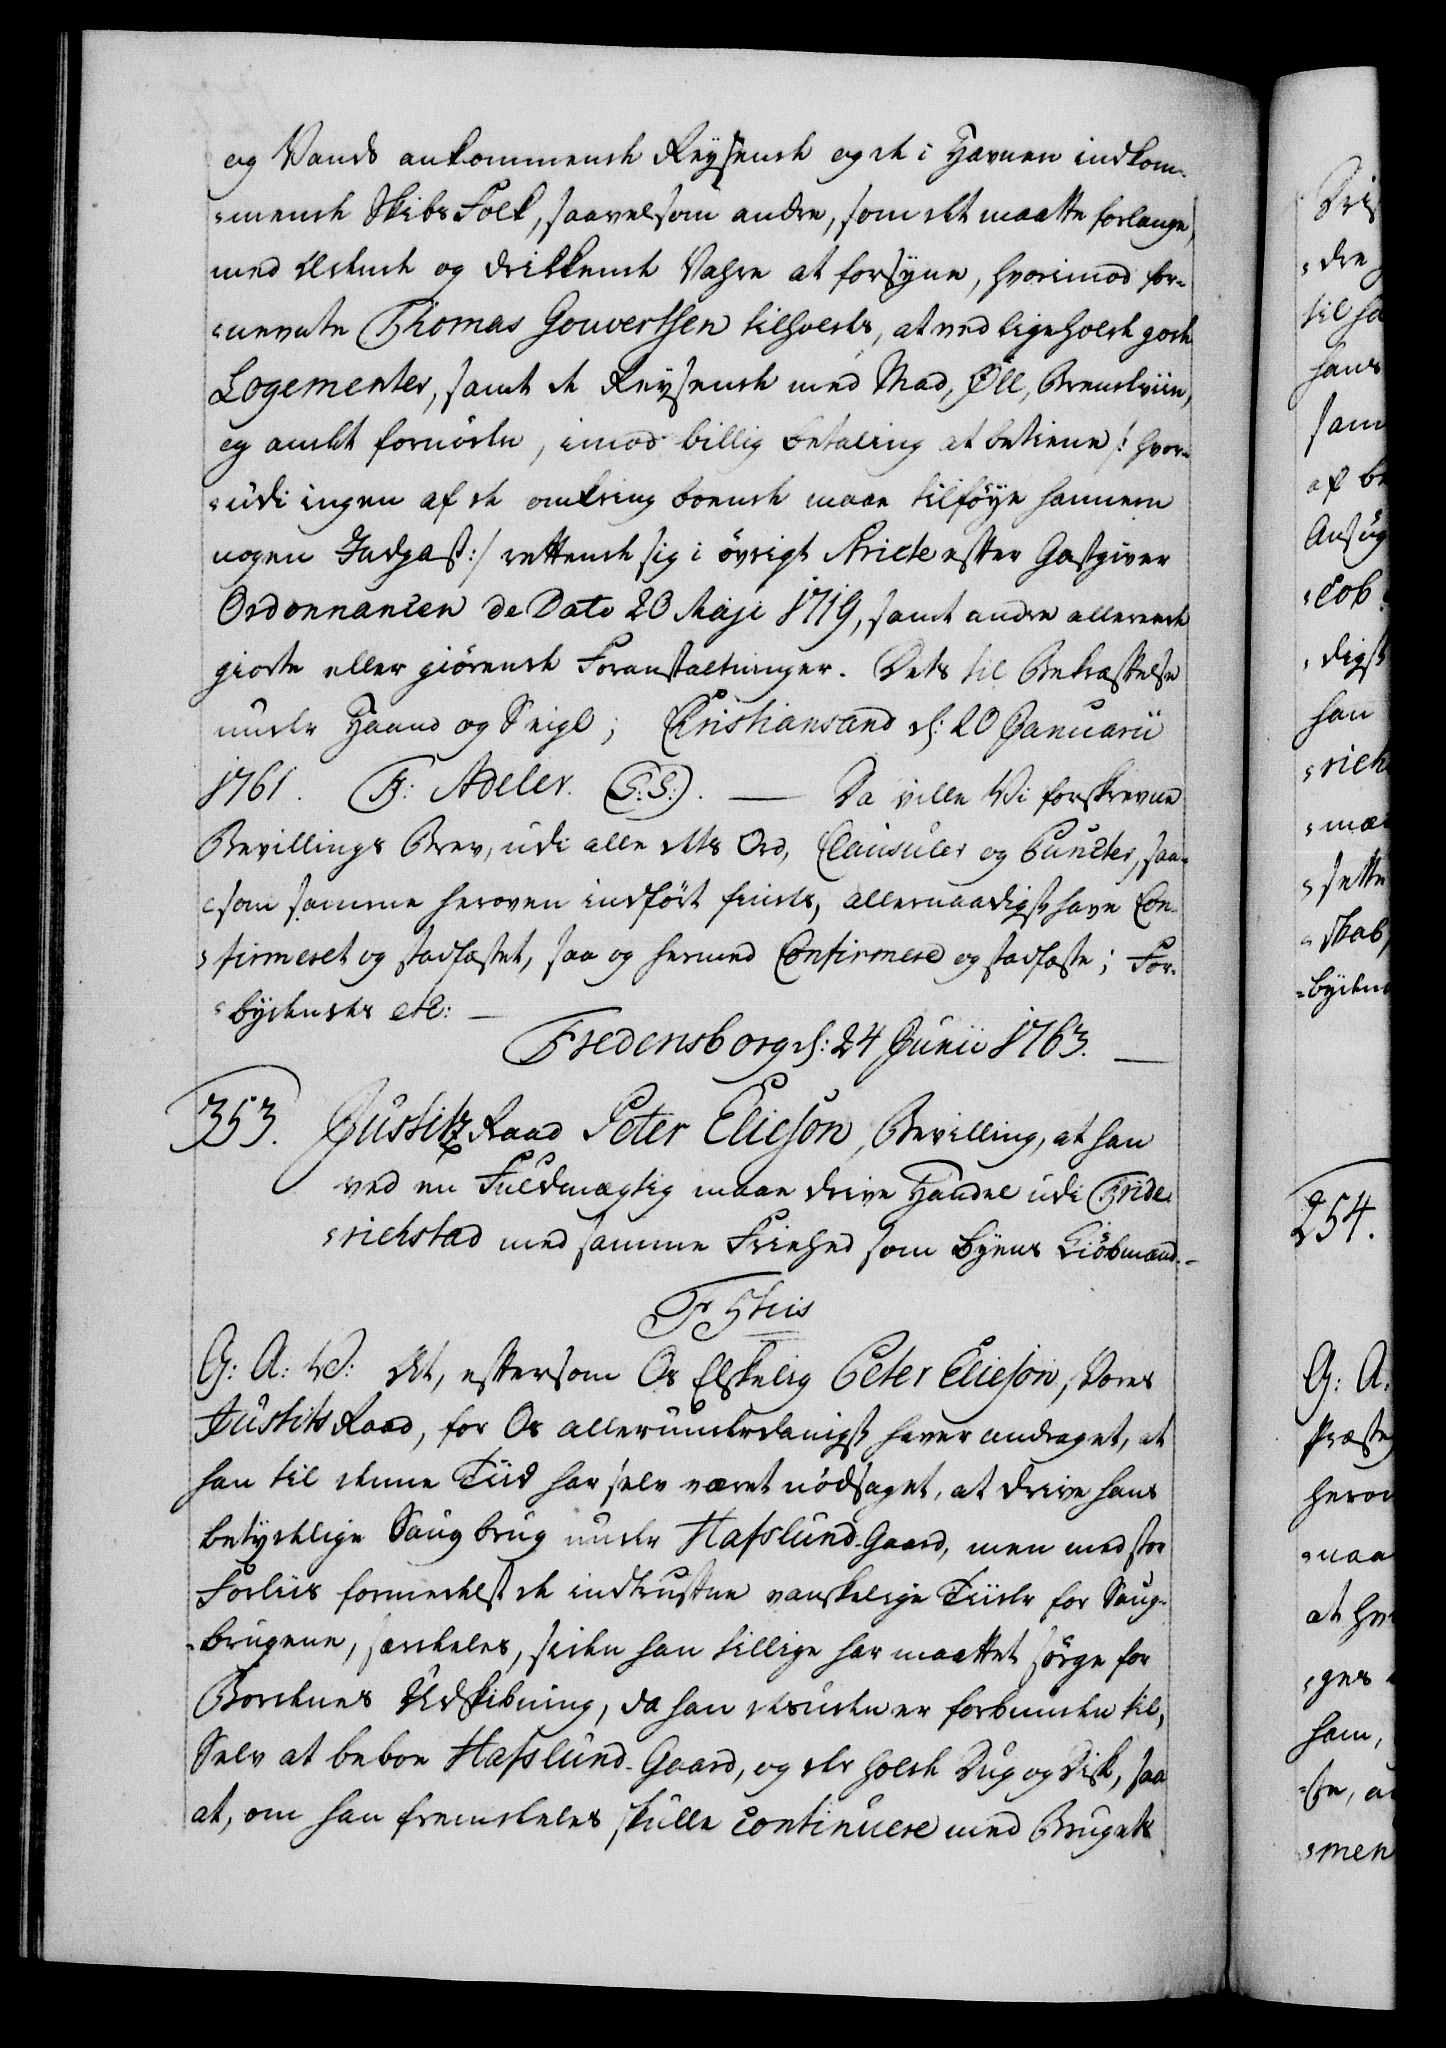 og Vands ankommende Reysende og de i Havnen indkom-
-mende Skibs Folk, saavelsom andre, som det maatte forlange,
med Ædende og drikkende Vahre at forsyne, hvorimod for-
-nevnte Thomas Gouvertsen tilholdes, at ved lige holde gode
Logementer, samt de Reysende med Mad, Øll, Brendeviin,
og andet fornøden, imod billig betaling at betiene /: hvor-
-udi ingen af de omkring boende maae tilføye hannem
nogen Indpas :/ rettende sig i øvrigt Stricte efter Gastgiver
Ordonnancen de Dato 23 Maji 1719, samt andre allerede
giorte eller giørende Foranstaltninger. Dets til Bekræftelse
under Haand og Seigl; Christiansand d: 20 Januarii
1761. F: Adeler. (L:S:). — Da ville Vi forskrevne
Bevillings Brev, udi alle dets Ord, Clausuler og Puncter, saa-
-som samme heroven indført findes, allernaadigst have Con-
-firmeret og stadfæstet, saa og hermed Confirmere og stadfæste; For-
-bydendes etc: —
Fredensborg d: 24 Junii 1763. —
353. Justitz Raad Peter Elieson, Bevilling, at han
ved en Fuldmægtig maae drive Handel udi Fride-
-richstad med samme Friehed som Byens Kiøbmænd.-
Fr 5tus
G: A: V: At, eftersom Os Elskelig Peter Elieson, Vores
Justits Raad, for Os allerunderdanigst haver andraget, at
han til denne Tiid har selv været nødsaget, at drive hans
betydelige Saugbrug under Hafslund-Gaard, men med stor
Forliis formedelst de indtrufne vanskelige Tiider for Saug-
-brugene, særdeles, siden han tillige har maattet sørge for
Bordenes Udskibning, da han desuden er forbunden til,
Selv at beboe Hafslund-Gaard, og der holde Dug og Disk, saa
at, om han fremdeles skulle continuere med Brugets